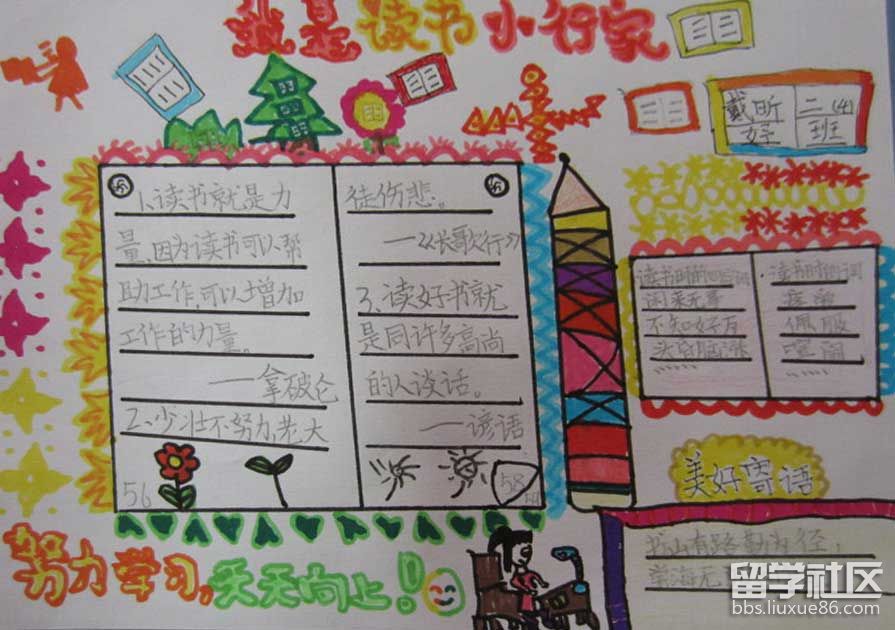 就是读书小行家
戴昕妤
二(4)班
1、读书就是力
量、因为读书可以帮
助工作,可以增加
工作的力量。
——拿破仑
2、少壮不努力,老大
56
徒伤悲。
——《长歌行》
3、读好书就
是同许多高尚
的人谈话。
——谚语
58
不知好歹
头昏脑涨
佩服
美好寄语
书山有路勤为径,
学海无
努力学习,天天向上!
留学社区
bbs.liuxue86.com